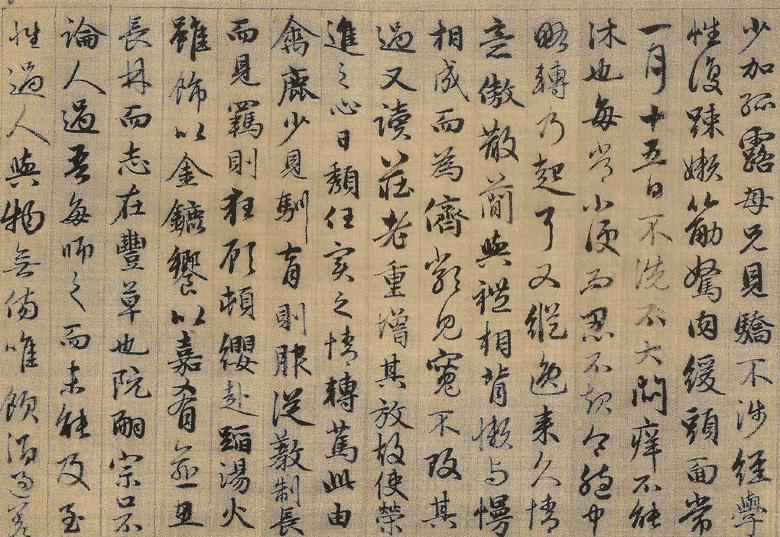 少加孤露母兄見驕不涉經學
性復疎嬾筋駑肉緩頭面常
一月十五日不洗不大悶癢不能
沐也每常小便而忍不起令胞中
略轉乃起耳又縱逸来久情
意傲散簡與禮相背懶与慢
相成而為儕類見寬不攻其
過又讀莊老重增其放故使榮
進之心日頹任實之情轉篤此由
禽鹿少見馴育則服從教制長
而見羈則狂顧頓纓赴蹈湯火
雖飾以金鑣饗以嘉肴逾思
長林而志在豐草也阮嗣宗口不
論人過吾每師之而未能及至
性過人與物無傷唯飲酒過差